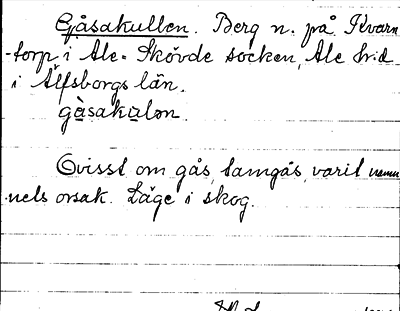 Gåsakullen. Berg n. på Kvarn
-torp i Ale-Skövde socken, Ale hrd
i Älfsborgs län.
gàsakulən.
Ovisst om gås, tamgås, varit namn
nels orsak. Läge i skog.